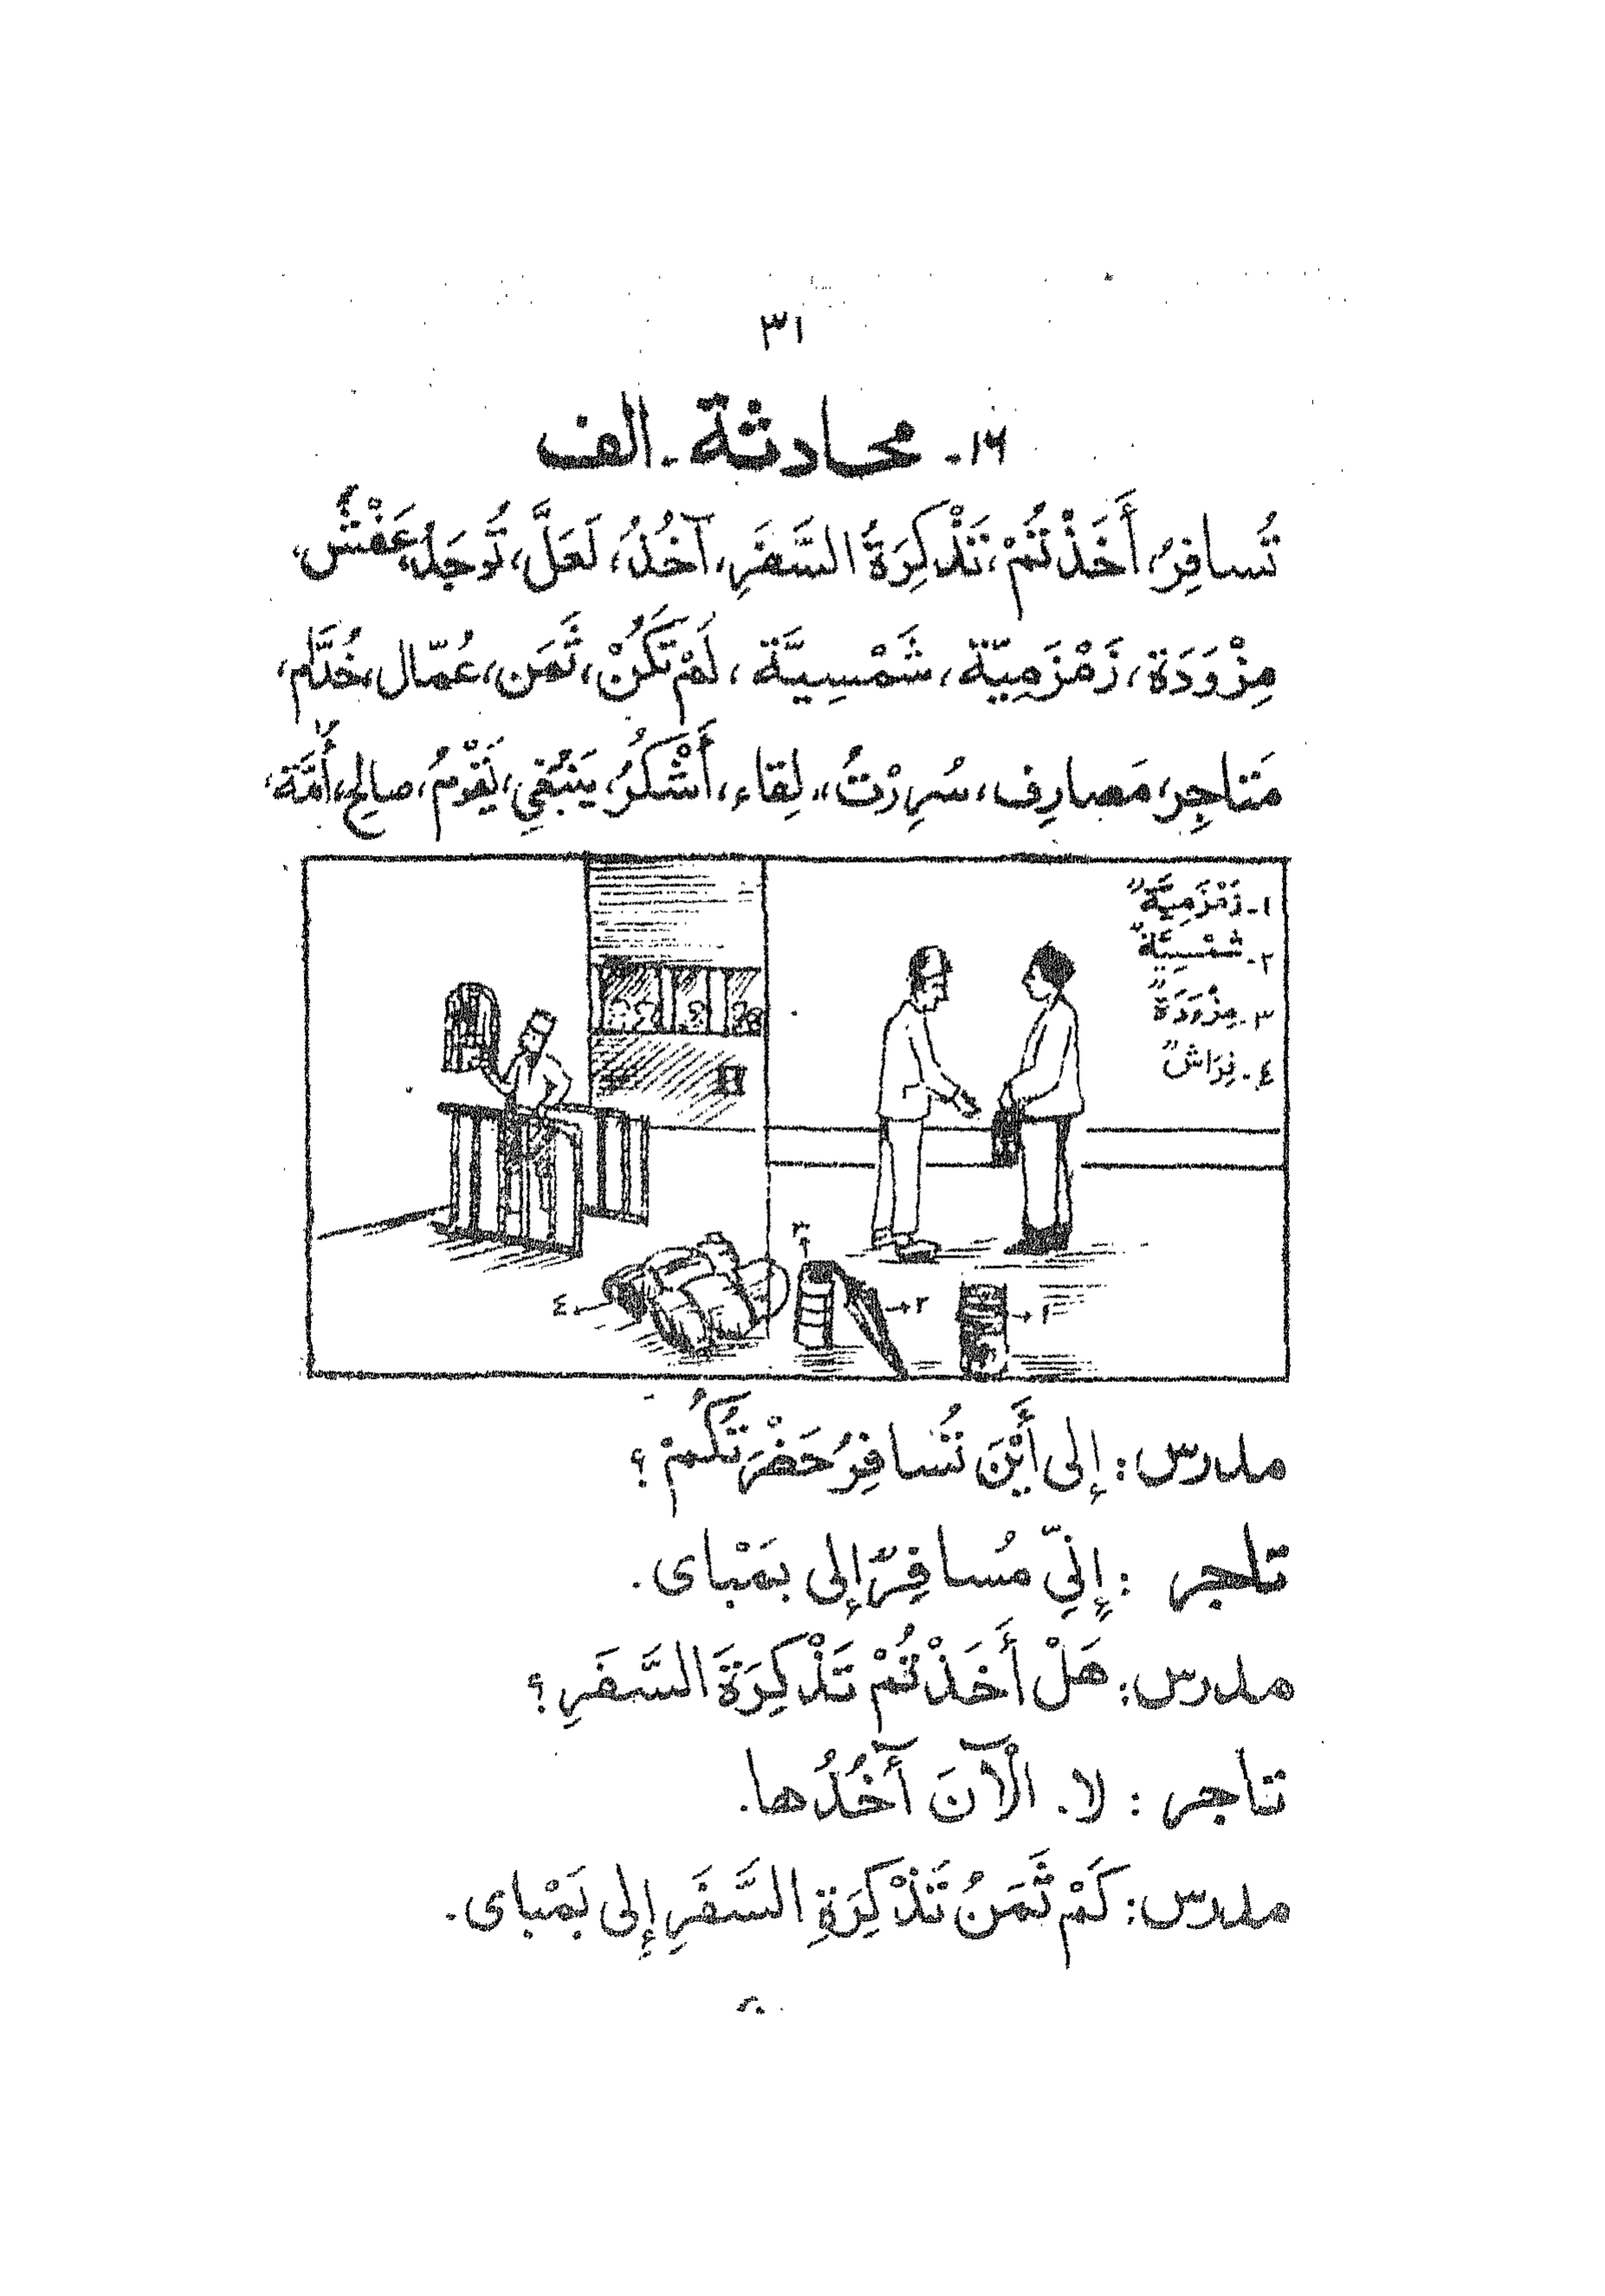 ٣١
١٦- محادثة - الف
تُسافِرُ، أَخَذْتُمْ، تَذْكِرَةُ السَّفَرِ، آخُذُ، لَعَلَّ، تُوجَدُ، عَفْشٌ،
مِزْوَدَة، زَمْزَمِيّة، شَمْسِيَّة، لَمْ تَكُنْ، ثَمَن، عُمّال، خُدَّام،
مَتاجِر، مَصارِف، سُرِرْتُ، لِقاء، أَشْكُرُ، يَنْبَغِي، تَقَدُّم، صالِح، أُمَّة،
١- زَمْزَمِيَّةٌ
٢- شَمْسِيَّةٌ
٣- مِزْوَدَةٌ
٤- فِرَاشٌ
٤
٣
٢
١
مدرس: إِلى أَيْنَ تُسافِرُ حَضْرَتُكُمْ؟
تاجر : إِنِّي مُسافِرٌ إِلى بَمْباى.
مدرس: هَلْ أَخَذْتُمْ تَذْكِرَةَ السَّفَرِ؟
تاجر : لا. الْآنَ آخُذُها.
مدرس: كَمْ ثَمَنُ تَذْكِرَةِ السَّفَرِ إِلى بَمْباى.